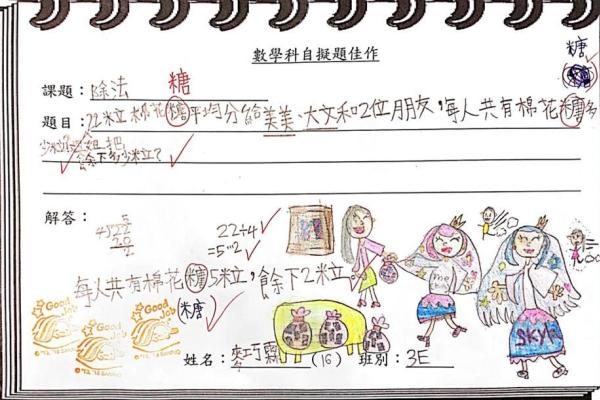 數學科自擬題佳作
糖
課題：除法
糖
題目：22粒棉花糖平均分給美美、大文和2位朋友，每人共有棉花糖多
少粒？餘下多少粒？
解答：
5
4)22
20
2
22÷4
=5…2
每人共有棉花糖5粒，餘下2粒
(糖)
Good Job
Good Job
Good Job
me
SKY
姓名：麥巧霖 (16) 班別：3E